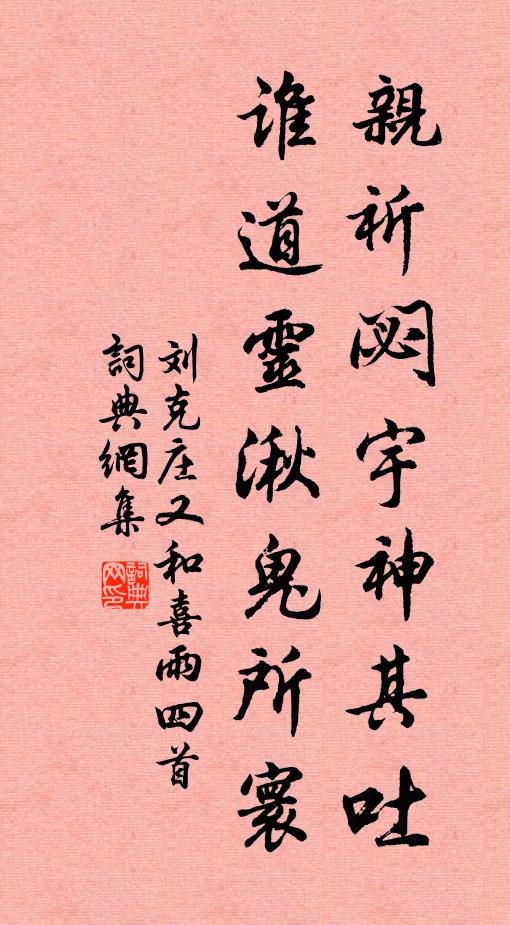 親祈閟宇神其吐
谁道靈湫鬼所寰
刘克庄又和喜雨四首
詞典網集
詞典
网印